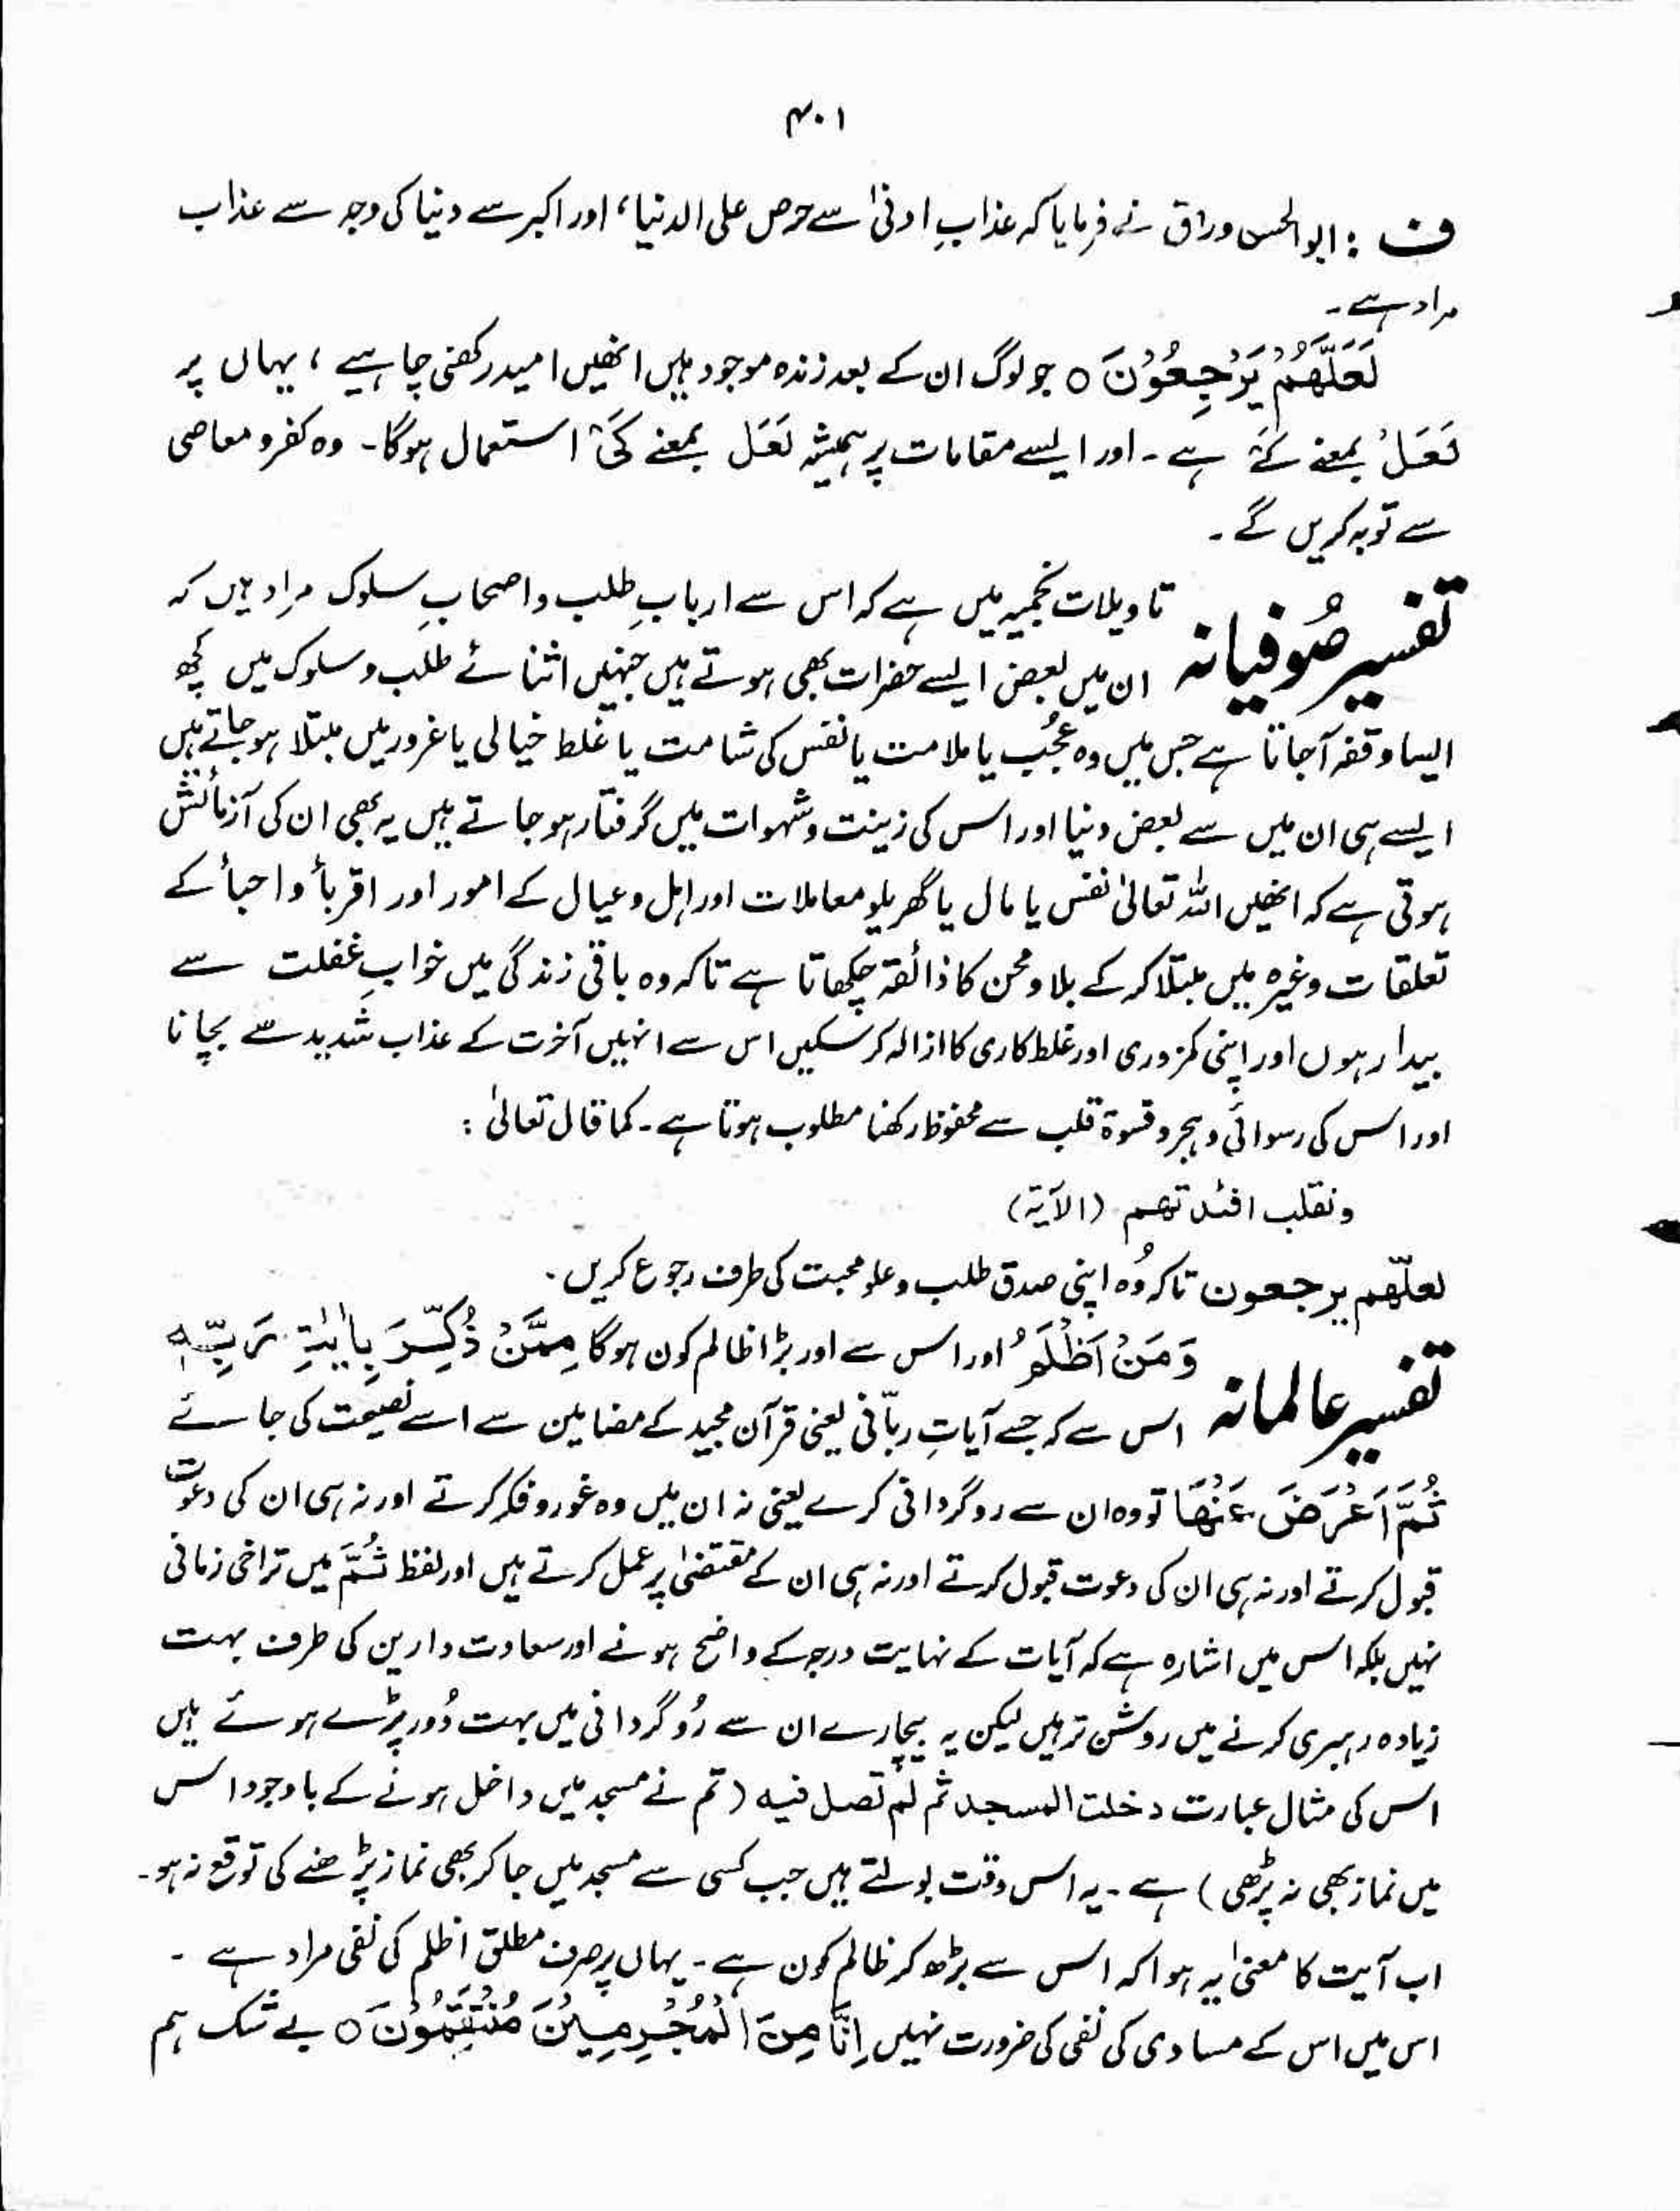 ۴۰۱
ف : ابوالحسن وراق نے فرمایا کہ عذابِ ادنیٰ سے حرص علی الدنیا، اور اکبر سے دنیا کی وجہ سے عذاب
مراد ہے۔
لَعَلَّهُمْ يَرْجِعُوْنَ ○ جو لوگ ان کے بعد زندہ موجود ہیں انھیں امید رکھنی چاہیے ، یہاں پر
لَعَلَّ بمعنے کَیْ ہے۔ اور ایسے مقامات پر ہمیشہ لَعَلَّ بمعنے کَیْ استعمال ہوگا۔ وہ کفر و معاصی
سے توبہ کریں گے۔
تفسیر صُوفیانہ تاویلات نجمیہ میں ہے کہ اس سے اربابِ طلب و اصحابِ سلوک مراد ہیں کہ
ان میں بعض ایسے حضرات بھی ہوتے ہیں جنہیں اثنائے طلب و سلوک میں کچھ
ایسا وقفہ آجاتا ہے جس میں وہ عُجُب یا ملامت یا نفس کی شامت یا غلط خیالی یا غرور میں مبتلا ہوجاتے ہیں
ایسے ہی ان میں سے بعض دنیا اور اس کی زینت و شہوات میں گرفتار ہو جاتے ہیں یہ بھی ان کی آزمائش
ہوتی ہے کہ انھیں اللہ تعالیٰ نفس یا مال یا گھریلو معاملات اور اہل و عیال کے امور اور اقربأ و احبأ کے
تعلقات وغیرہ میں مبتلا کر کے بلا و محن کا ذائقہ چکھاتا ہے تاکہ وہ باقی زندگی میں خوابِ غفلت سے
بیدار ہوں اور اپنی کمزوری اور غلط کاری کا ازالہ کرسکیں اس سے انہیں آخرت کے عذاب شدید سے بچانا
اور اس کی رسوائی و ہجر و قسوۃ قلب سے محفوظ رکھنا مطلوب ہوتا ہے۔ کما قال تعالیٰ :
ونقلب افئدتهم (الآیۃ)
لعلّهم يرجعون تاکہ وُہ اپنی صدق طلب و علو محبت کی طرف رجوع کریں۔
تفسیر عالمانہ وَمَنْ اَظْلَمُ اور اس سے اور بڑا ظالم کون ہوگا مِمَّنْ ذُكِّرَ بِاٰيٰتِ رَبِّهٖ
اس سے کہ جسے آیاتِ ربّانی یعنی قرآن مجید کے مضامین سے اسے نصیحت کی جائے
ثُمَّ اَعْرَضَ عَنْهَا تو وہ ان سے روگردانی کرے یعنی نہ ان میں وہ غور و فکر کرتے اور نہ ہی ان کی دعوت
قبول کرتے اور نہ ہی ان کی دعوت قبول کرتے اور نہ ہی ان کے مقتضیٰ پر عمل کرتے ہیں اور لفظ ثُمَّ میں تراخی زمانی
نہیں بلکہ اس میں اشارہ ہے کہ آیات کے نہایت درجہ کے واضح ہونے اور سعادت دارین کی طرف بہت
زیادہ رہبری کرنے میں روشن تر ہیں لیکن یہ بیچارے ان سے رُوگردانی میں بہت دُور پڑے ہوئے ہیں
اس کی مثال عبارت دخلت المسجد ثم لم تصل فيه (تم نے مسجد میں داخل ہونے کے باوجود اس
میں نماز بھی نہ پڑھی) ہے۔ یہ اس وقت بولتے ہیں جب کسی سے مسجد میں جا کر بھی نماز پڑھنے کی توقع نہ ہو۔
اب آیت کا معنیٰ یہ ہوا کہ اس سے بڑھ کر ظالم کون ہے۔ یہاں پر صرف مطلق اظلم کی نفی مراد ہے۔
اس میں اس کے مساوی کی نفی کی ضرورت نہیں اِنَّا مِنَ الْمُجْرِمِيْنَ مُنْتَقِمُوْنَ ○ بے شک ہم